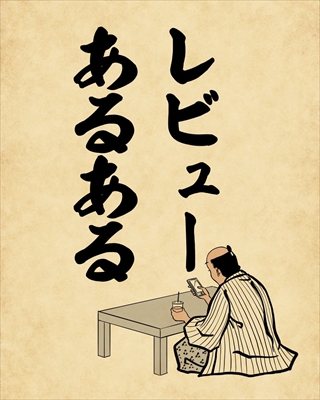 レビュー
あるある